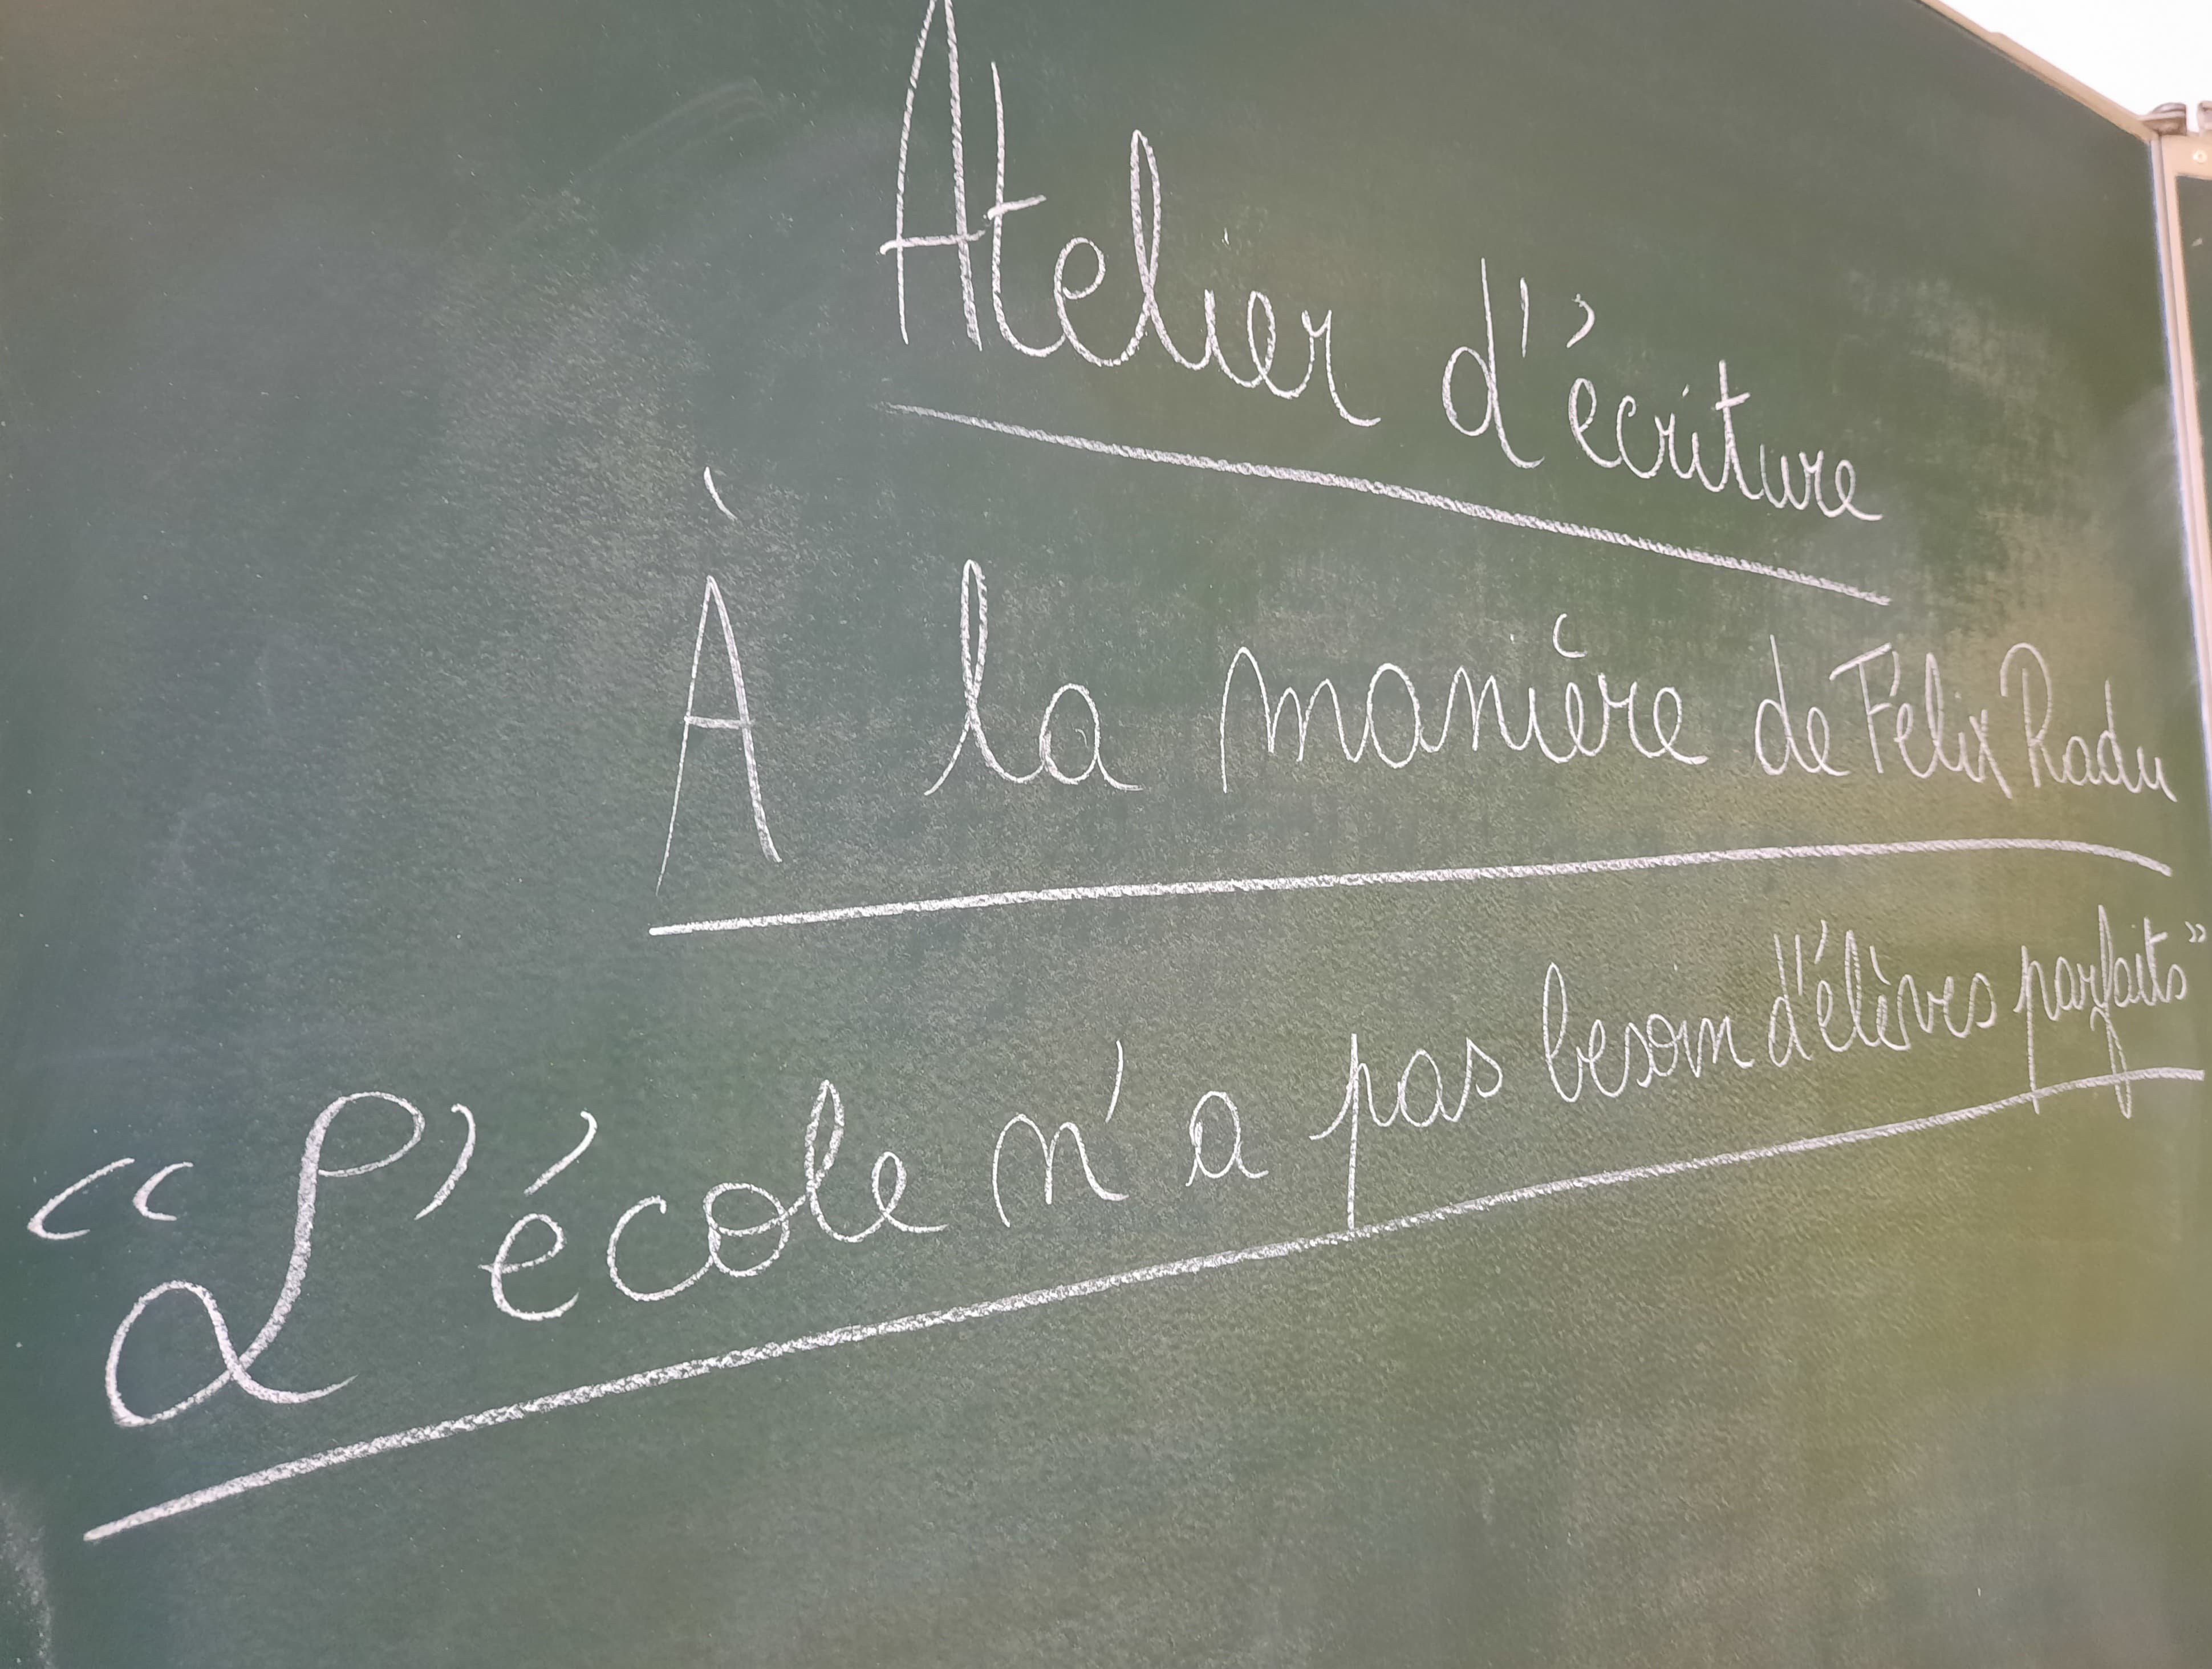 Atelier d'écriture
À la manière de Félix Radu
“L'école n'a pas besoin d'élèves parfaits”